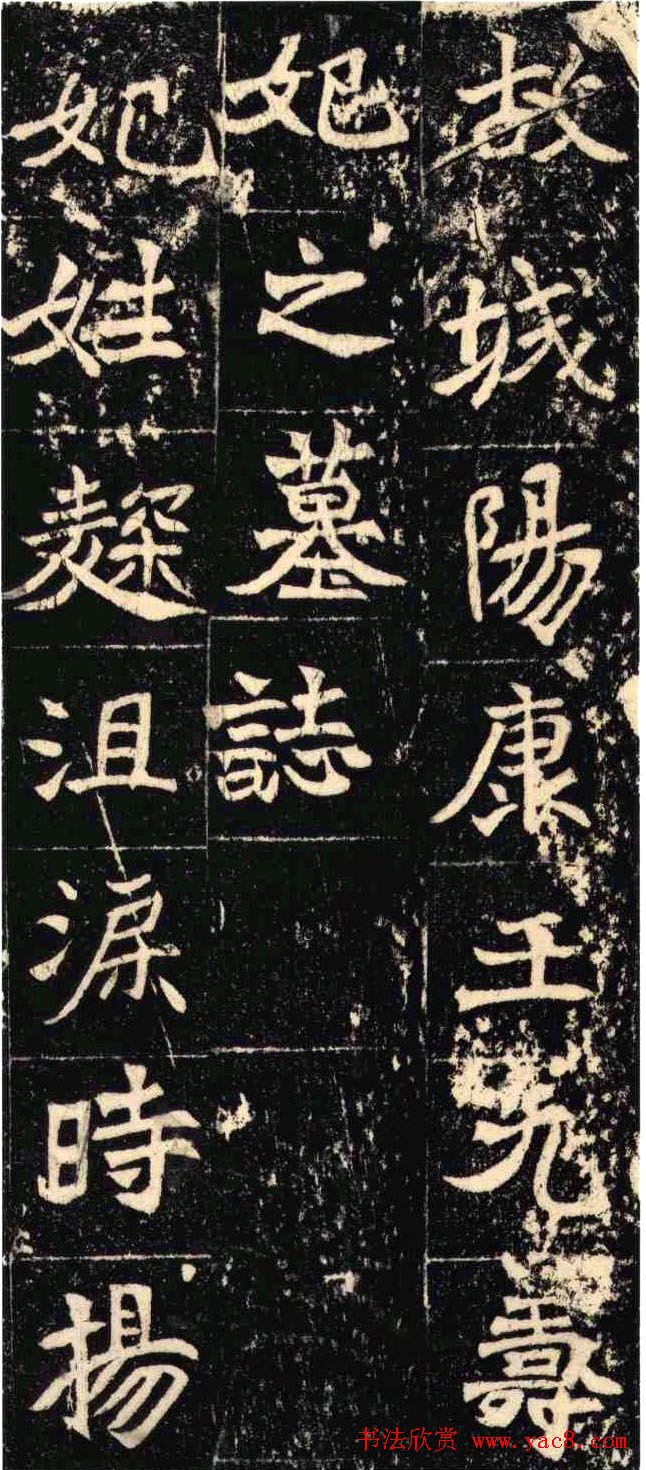 故城陽康王元壽
妃之墓誌
妃姓麴沮源時揚
书法欣赏 www.yac8.com